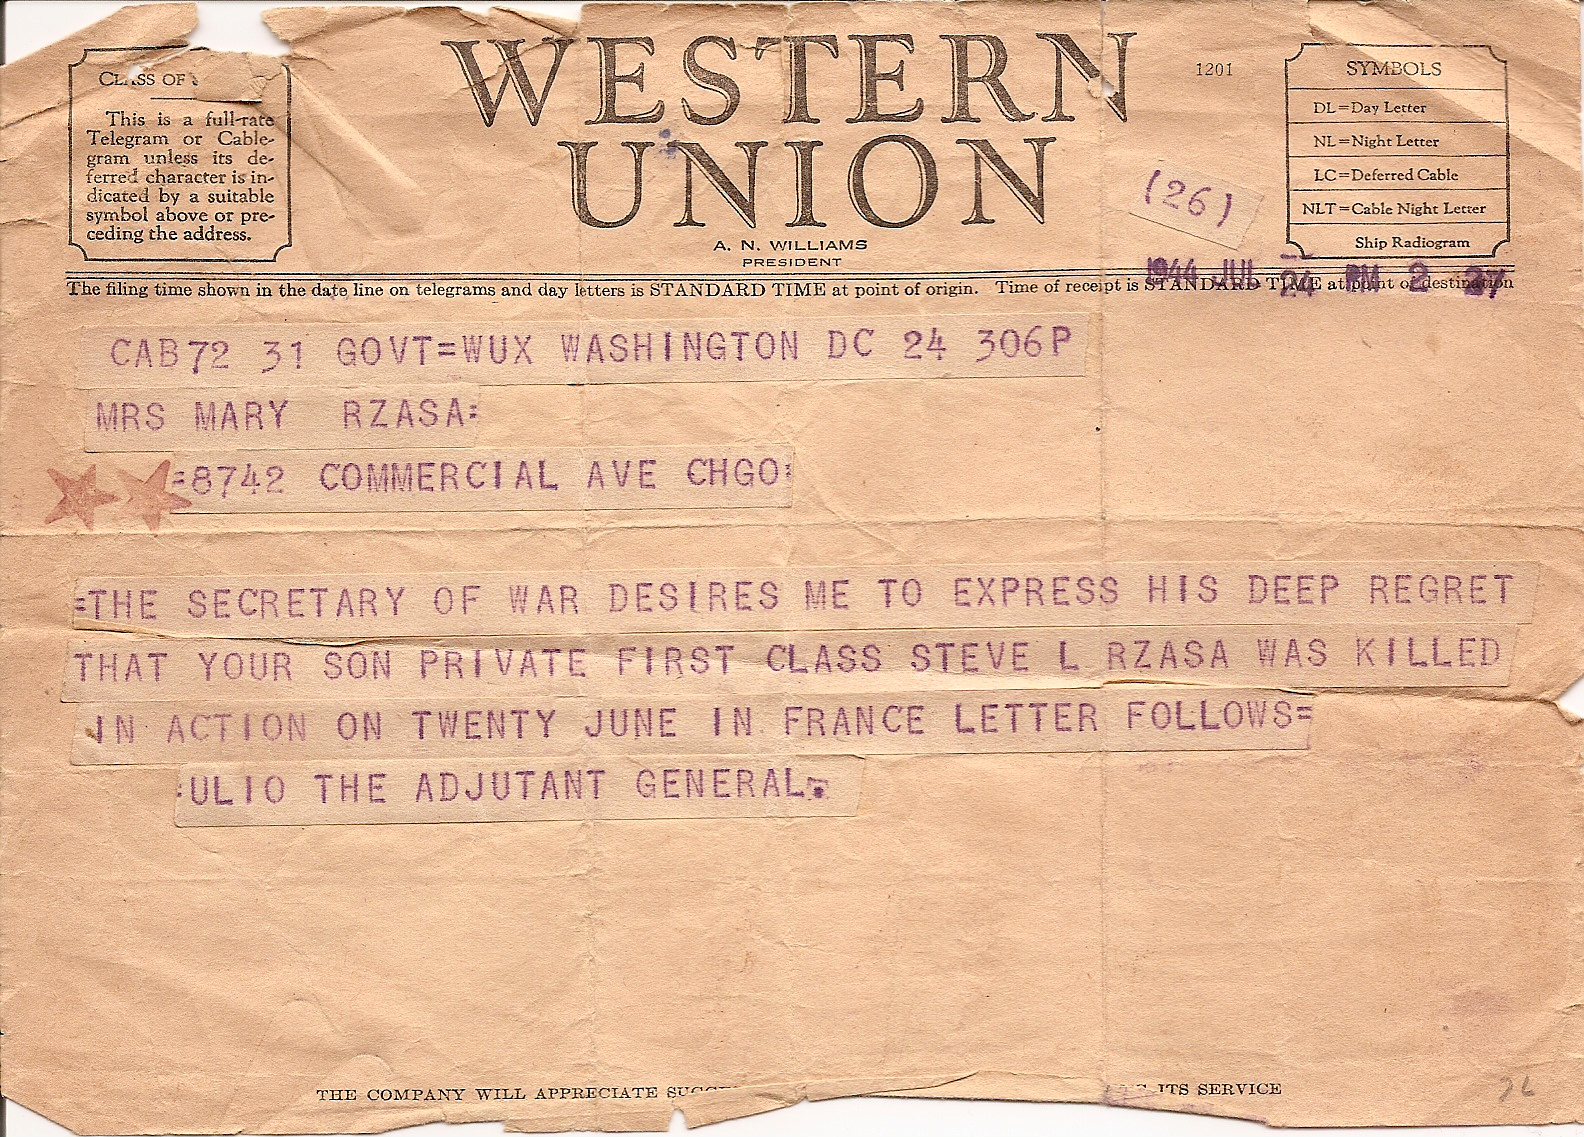 CLASS OF
This is a full-rate
Telegram or Cable-
gram unless its de-
ferred character is in-
dicated by a suitable
symbol above or pre-
ceding the address.
WESTERN
UNION
A. N. WILLIAMS
PRESIDENT
1201
(26)
SYMBOLS
DL=Day Letter
NL=Night Letter
LC=Deferred Cable
NLT=Cable Night Letter
Ship Radiogram
1944 JUL 24 PM 2 27
The filing time shown in the date line on telegrams and day letters is STANDARD TIME at point of origin. Time of receipt is STANDARD TIME at point of destination
CAB72 31 GOVT=WUX WASHINGTON DC 24 306P
MRS MARY RZASA=
=8742 COMMERCIAL AVE CHGO=
=THE SECRETARY OF WAR DESIRES ME TO EXPRESS HIS DEEP REGRET
THAT YOUR SON PRIVATE FIRST CLASS STEVE L RZASA WAS KILLED
IN ACTION ON TWENTY JUNE IN FRANCE LETTER FOLLOWS=
=ULIO THE ADJUTANT GENERAL.
THE COMPANY WILL APPRECIATE ITS SERVICE